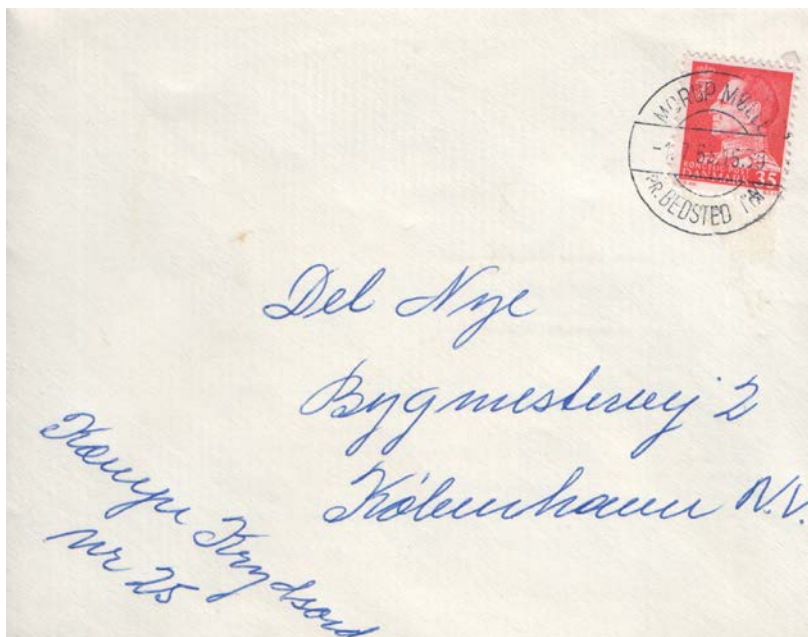 MØRUP MØLLE
PR. BEDSTED THY
35
Del Nye
Bygmestervej 2
København N.V.
Kæmpe Krydsord
nr 25